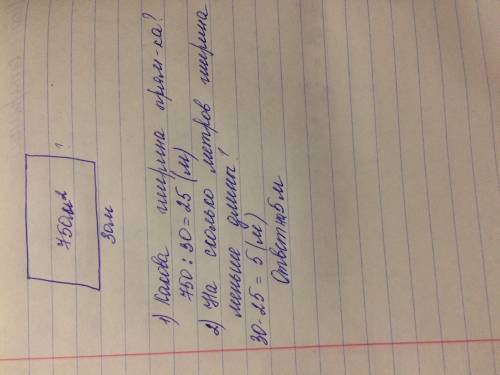 750м²
?
30м
1) Какова ширина прям-ка?
750 : 30 = 25 (м)
2) На сколько метров ширина
меньше длины?
30 - 25 = 5 (м)
Ответ: на 5 м